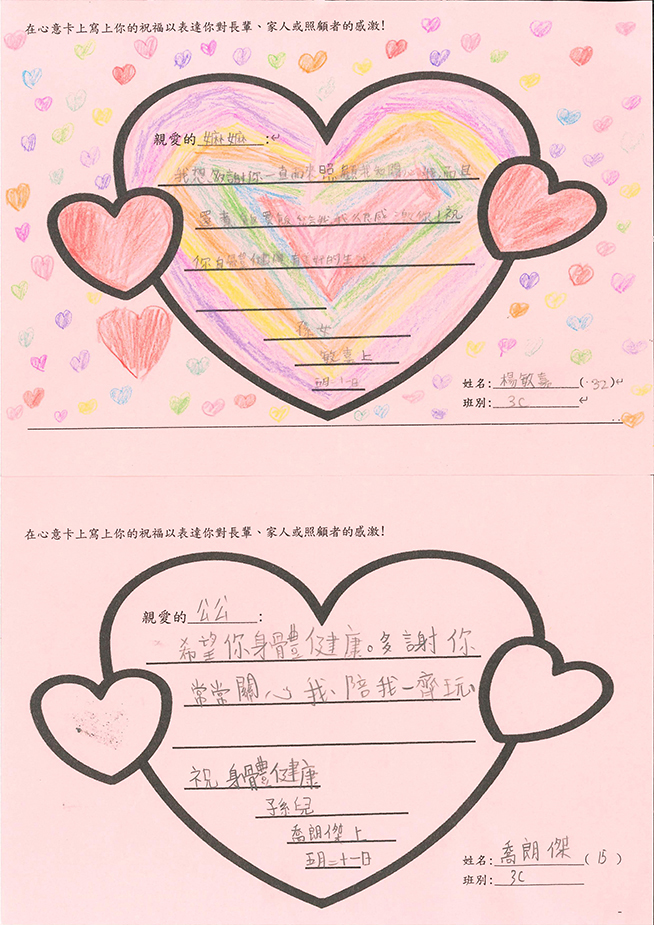 在心意卡上寫上你的祝福以表達你對長輩、家人或照顧者的感激!
親愛的嫲嫲:
我想感謝你一直而來照顧我和關心我,而且
你身體健康
敏嘉上
姓名:楊敏嘉(32)
班別:3C
在心意卡上寫上你的祝福以表達你對長輩、家人或照顧者的感激!
親愛的公公:
希望你身體健康。多謝你
常常關心我、陪我一齊玩
祝身體健康
孫兒
喬朗傑上
五月二十一日
姓名:喬朗傑(15)
班別:3C